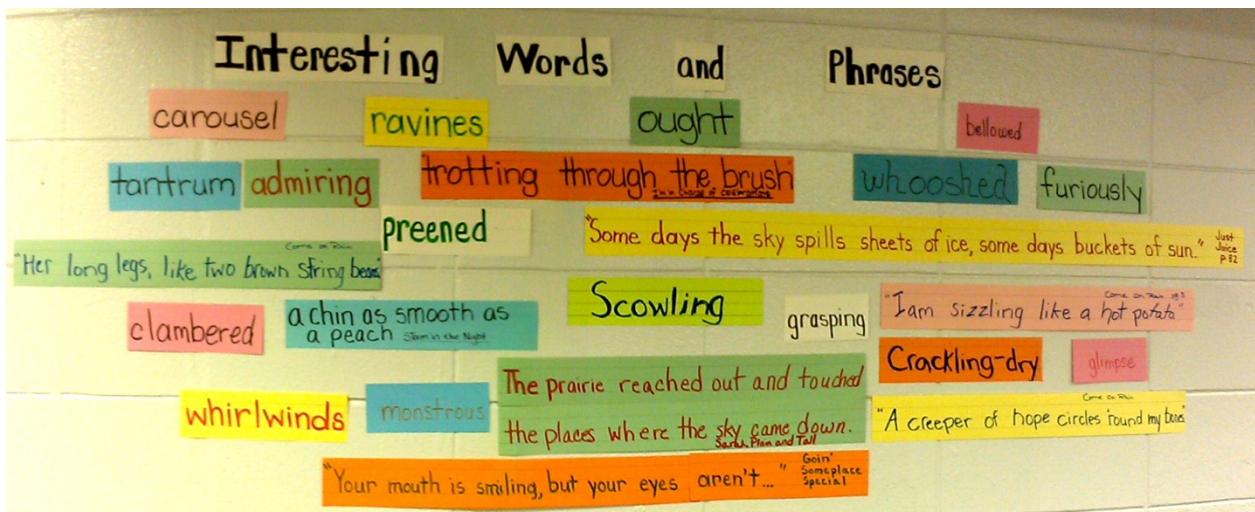 Interesting Words and Phrases
carousel
ravines
ought
bellowed
tantrum
admiring
trotting through the brush
In a Circle of
whooshed
furiously
preened
"Some days the sky spills sheets of ice, some days buckets of sun."
Just
Juice
p.82
Come on Rain
"Her long legs, like two brown string beans"
clambered
a chin as smooth as
a peach
Storm in the Night
Scowling
grasping
Come on Rain
"I am sizzling like a hot potato"
Crackling-dry
glimpse
whirlwinds
monstrous
The prairie reached out and touched
the places where the sky came down.
Sarah, Plan and Tall
Come on Rain
"A creeper of hope circles 'round my bones"
"Your mouth is smiling, but your eyes aren't..."
Goin'
Someplace
Special